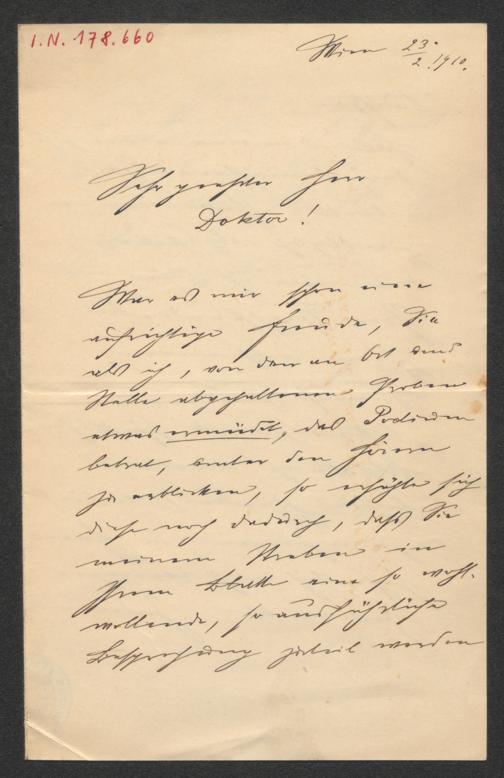 I.N. 178.660
Wien 23./2. 1910.
Sehr geehrter Herr
Doktor!
War es mir schon eine
aufrichtige Freude, Sie
als ich, von den an Ort und
Stelle abgehaltenen Proben
etwas ermüdet, das Podium
betrat, unter den Hörern
zu erblicken, so erhöhte sich
diese noch dadurch, daß Sie
meinem Streben in
Ihrem Blatte eine so wohl-
wollende, so ausführliche
Besprechung zuteil werden